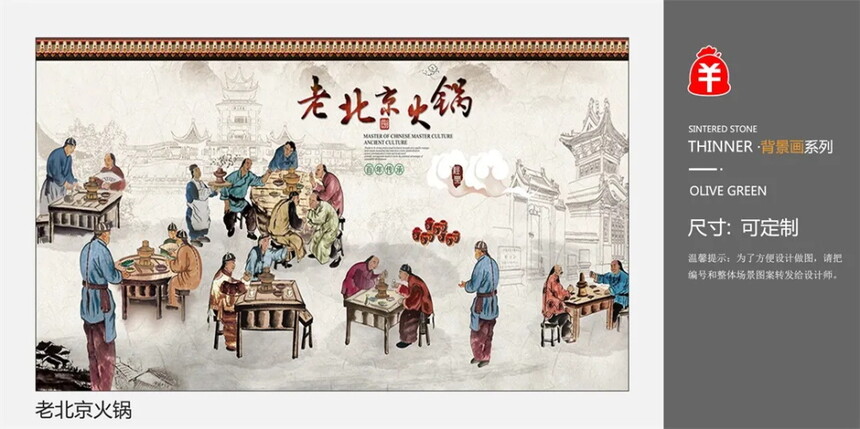 老北京火锅
MASTER OF CHINESE MASTER CULTURE
ANCIENT CULTURE
百年传承
老北京火锅
SINTERED STONE
THINNER ·背景画系列
OLIVE GREEN
尺寸: 可定制
温馨提示：为了方便设计做图，请把
编号和整体场景图案转发给设计师。